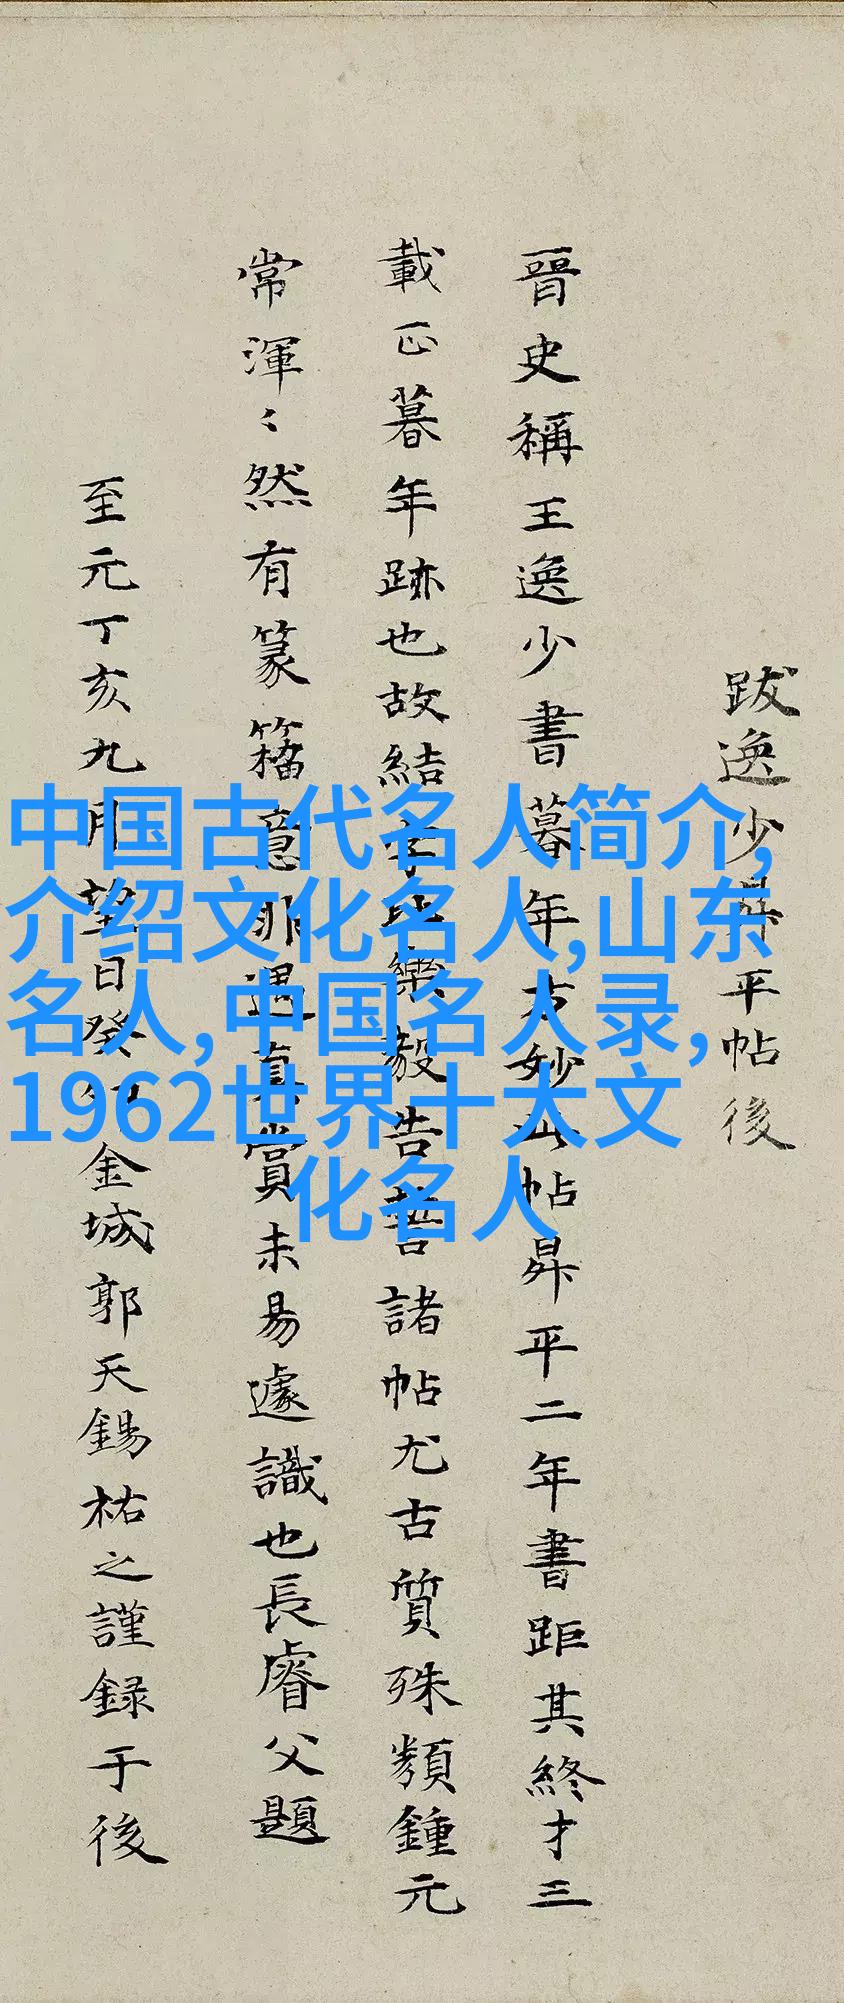 跋逸少昇平帖後
晉史稱王逸少書暮年方妙此帖昇平二年書距其終才三
載正暮年跡也故結字比樂毅告誓諸帖尤古質殊類鍾元
常渾〻然有篆籀意非遇真賞未易遽識也長睿父題
至元丁亥九月望日癸 金城郭天錫祐之謹録于後
中国古代名人简介,
介绍文化名人,山东
名人,中国名人录,
1962世界十大文
化名人